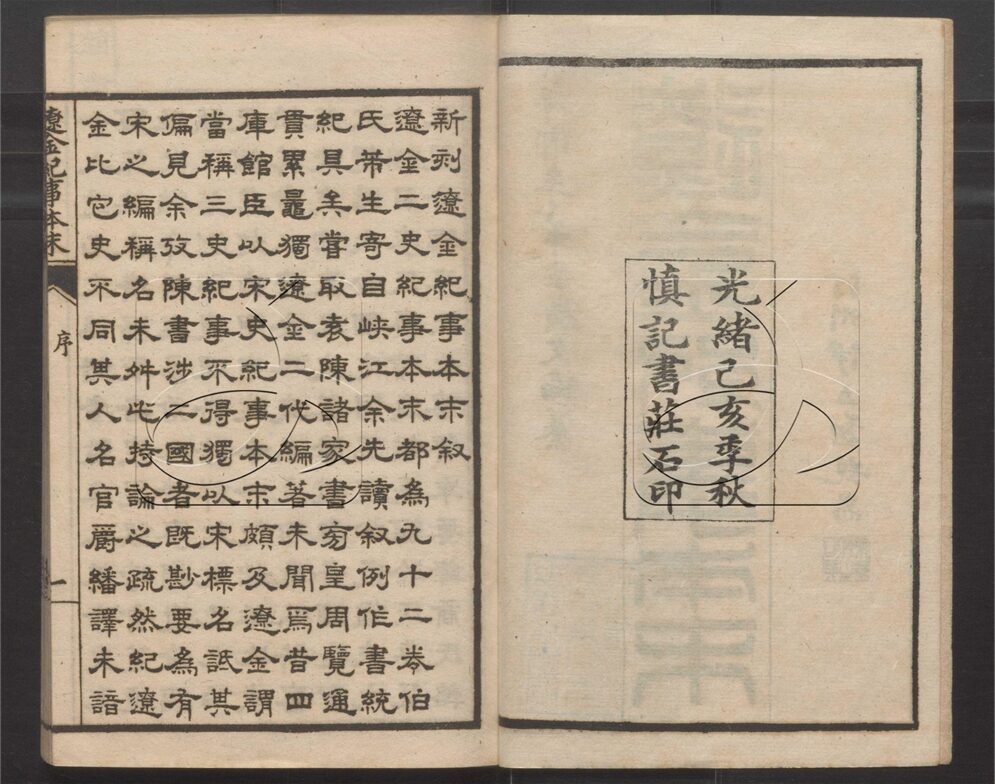 光緒己亥季秋
慎記書莊石印
新刻遼金紀事本末叙
遼金二史紀事本末都為九十二卷伯
氏芾生寄自峽江余先讀叙例作書統
紀具矣嘗取袁陳諸家書旁皇周覽通
貫累獨遼金二代編著未聞焉昔四
庫館臣以宋史紀事本末頗及遼金謂
當稱三史紀事不得獨以宋標名詆其
偏見余攷陳書涉二國者既尠要為有
宋之編稱名未舛此持論之疏然紀遼
金比它史不同其人名官爵繙譯未諳
遼金紀事本末
序
一